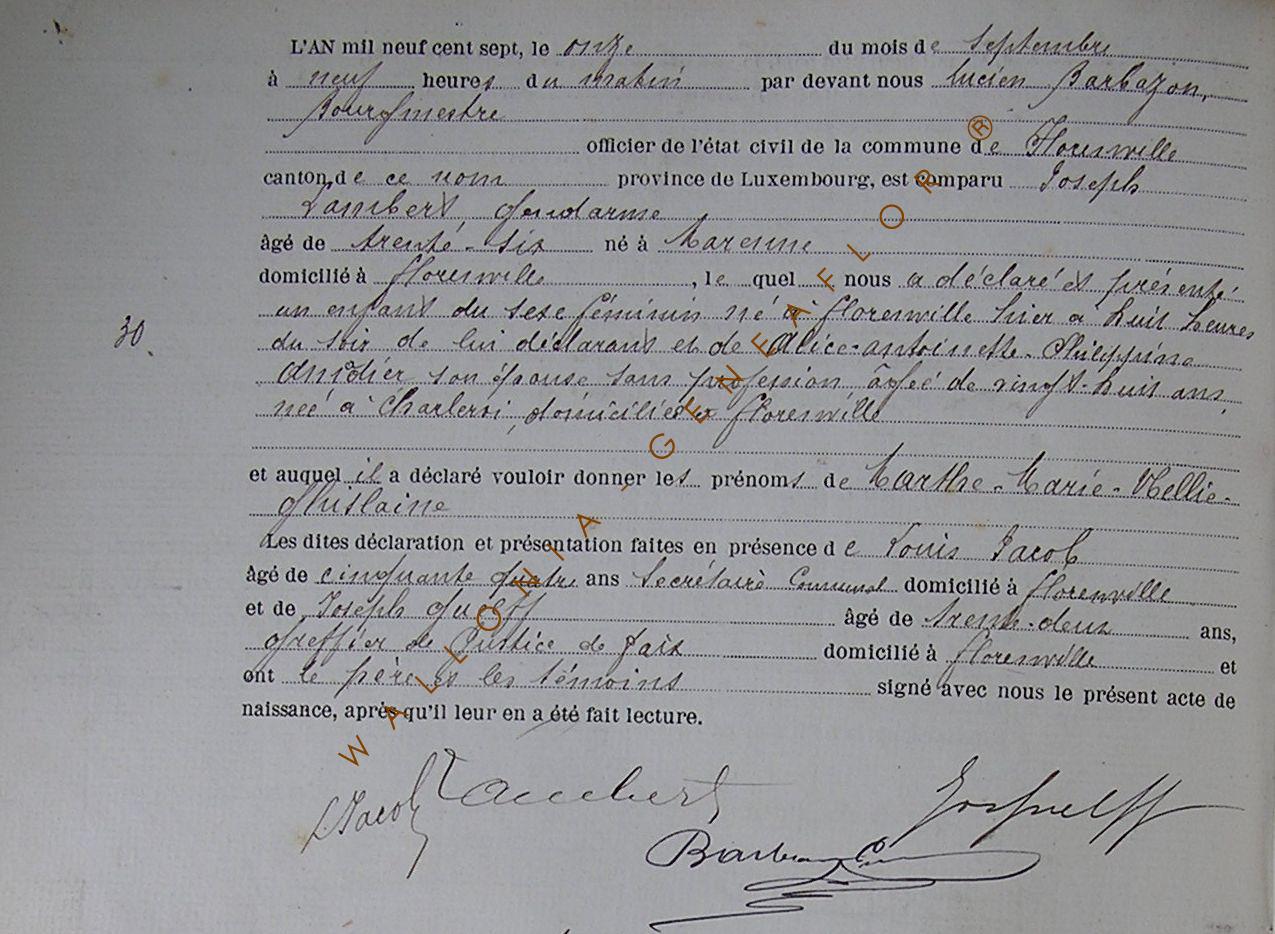 L'AN mil neuf cent sept, le onze du mois de Septembre
à neuf heures du matin par devant nous Lucien Barbazon,
Bourgmestre
officier de l'état civil de la commune de Florenville
canton de ce nom province de Luxembourg, est comparu Joseph
Lambert, gendarme
âgé de trente-six né à Marenne
domicilié à florenville, le quel nous a déclaré et présenté
un enfant du sexe féminin né à florenville hier à huit heures
du soir de lui déclarant et de Alice-antoinette-Philippine
son épouse sans profession âgée de vingt-huit ans,
née à Charleroi, domiciliée à florenville
30
et auquel il a déclaré vouloir donner les prénoms de Marthe-Marie-Nellie-
Ghislaine
Les dites déclaration et présentation faites en présence de Louis Jacob
âgé de cinquante quatre ans Secrétaire Communal domicilié à florenville
et de Joseph âgé de trente-deux ans,
Greffier de Justice de paix domicilié à florenville et
ont le père et les témoins signé avec nous le présent acte de
naissance, après qu'il leur en a été fait lecture.
L Jacob Lambert
Barbazon
WALLONIA - GENEAFLOR ®